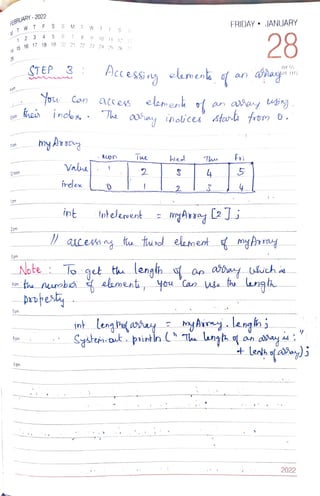 FEBRUARY - 2022
FRIDAY • JANUARY
T W T F S S M T W T F S
1 2 3 4 5 6 7 8 9 10 11 12
15 16 17 18 19 20 21 22 23 24 25 26
28
STEP 3 : Accessing elements of an array
You can access elements of an array using
their index. The array indices starts from 0.
myArray
Mon Tue Wed Thu Fri
Value 1 2 3 4 5
Index 0 1 2 3 4
int intelement = myArray [2];
// accessing the third element of myArray
Note : To get the length of an array which is
the number of elements, you can use the length
property.
int lengthofarray = myArray.length;
System.out.println (" The length of an array is : "
+ lenthofarray);
2022